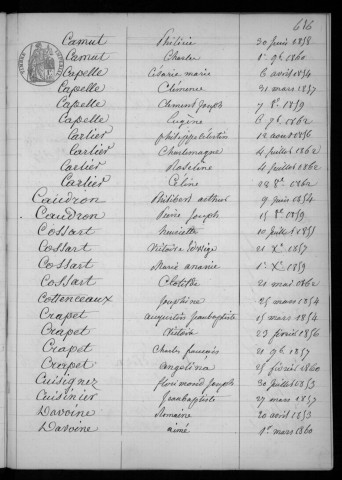 616
Camut Philirie 30 juin 1858
Camut Charles 1er 9b 1860
Capelle Césarie marie 6 avril 1854
Capelle Clémence 31 mars 1857
Capelle Clément Joseph 7 8bre 1859
Capelle Eugène 6 9b. 1862
Cartier philippe célestin 12 aout 1856
Cartier Charlemagne 4 juillet 1862
Cartier Roseline 4 juillet 1862
Cartier Céline 22 8bre 1862
Caudron Philibert arthur 9 juin 1854
Caudron Pierre Joseph 15 8bre 1859
Cossart Henriette 10 juillet 1855
Cossart Victoire 21 Xbre 1857
Cossart Marie ananie 1er Xbre 1859
Cossart Clotilde 21 mai 1862
Cottenceaux Joséphine 25 mars 1854
Crapet augustin jeanbaptiste 15 mars 1854
Crapet Victoire 23 février 1856
Crapet Charles 21 9b 1857
Crapet angélina 25 février 1860
Cuisignez florimond Joseph 30 juillet 1853
Cuisinier Jeanbaptiste 27 mars 1857
Davoine Romaine 20 avril 1853
Davoine aimé 1er mars 1860